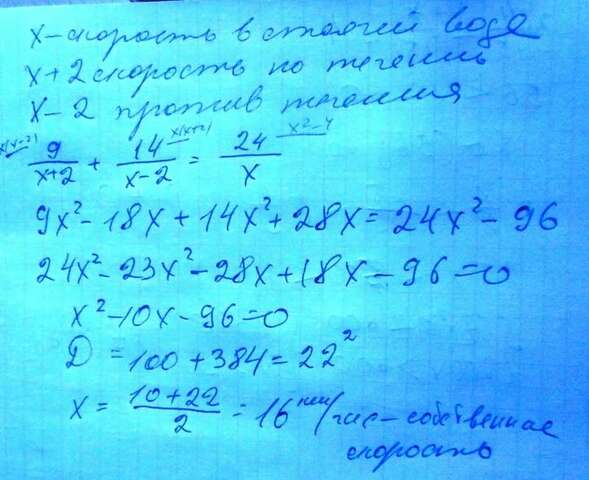 x - скорость в стоячей воде
x+2 скорость по течению
x-2 против течения
x(x-2) x(x+2) x²-4
9/(x+2) + 14/(x-2) = 24/x
9x²-18x+14x²+28x=24x²-96
24x²-23x²-28x+18x-96=0
x²-10x-96=0
D=100+384=22²
x = (10+22)/2 = 16 км/час - собственная
скорость